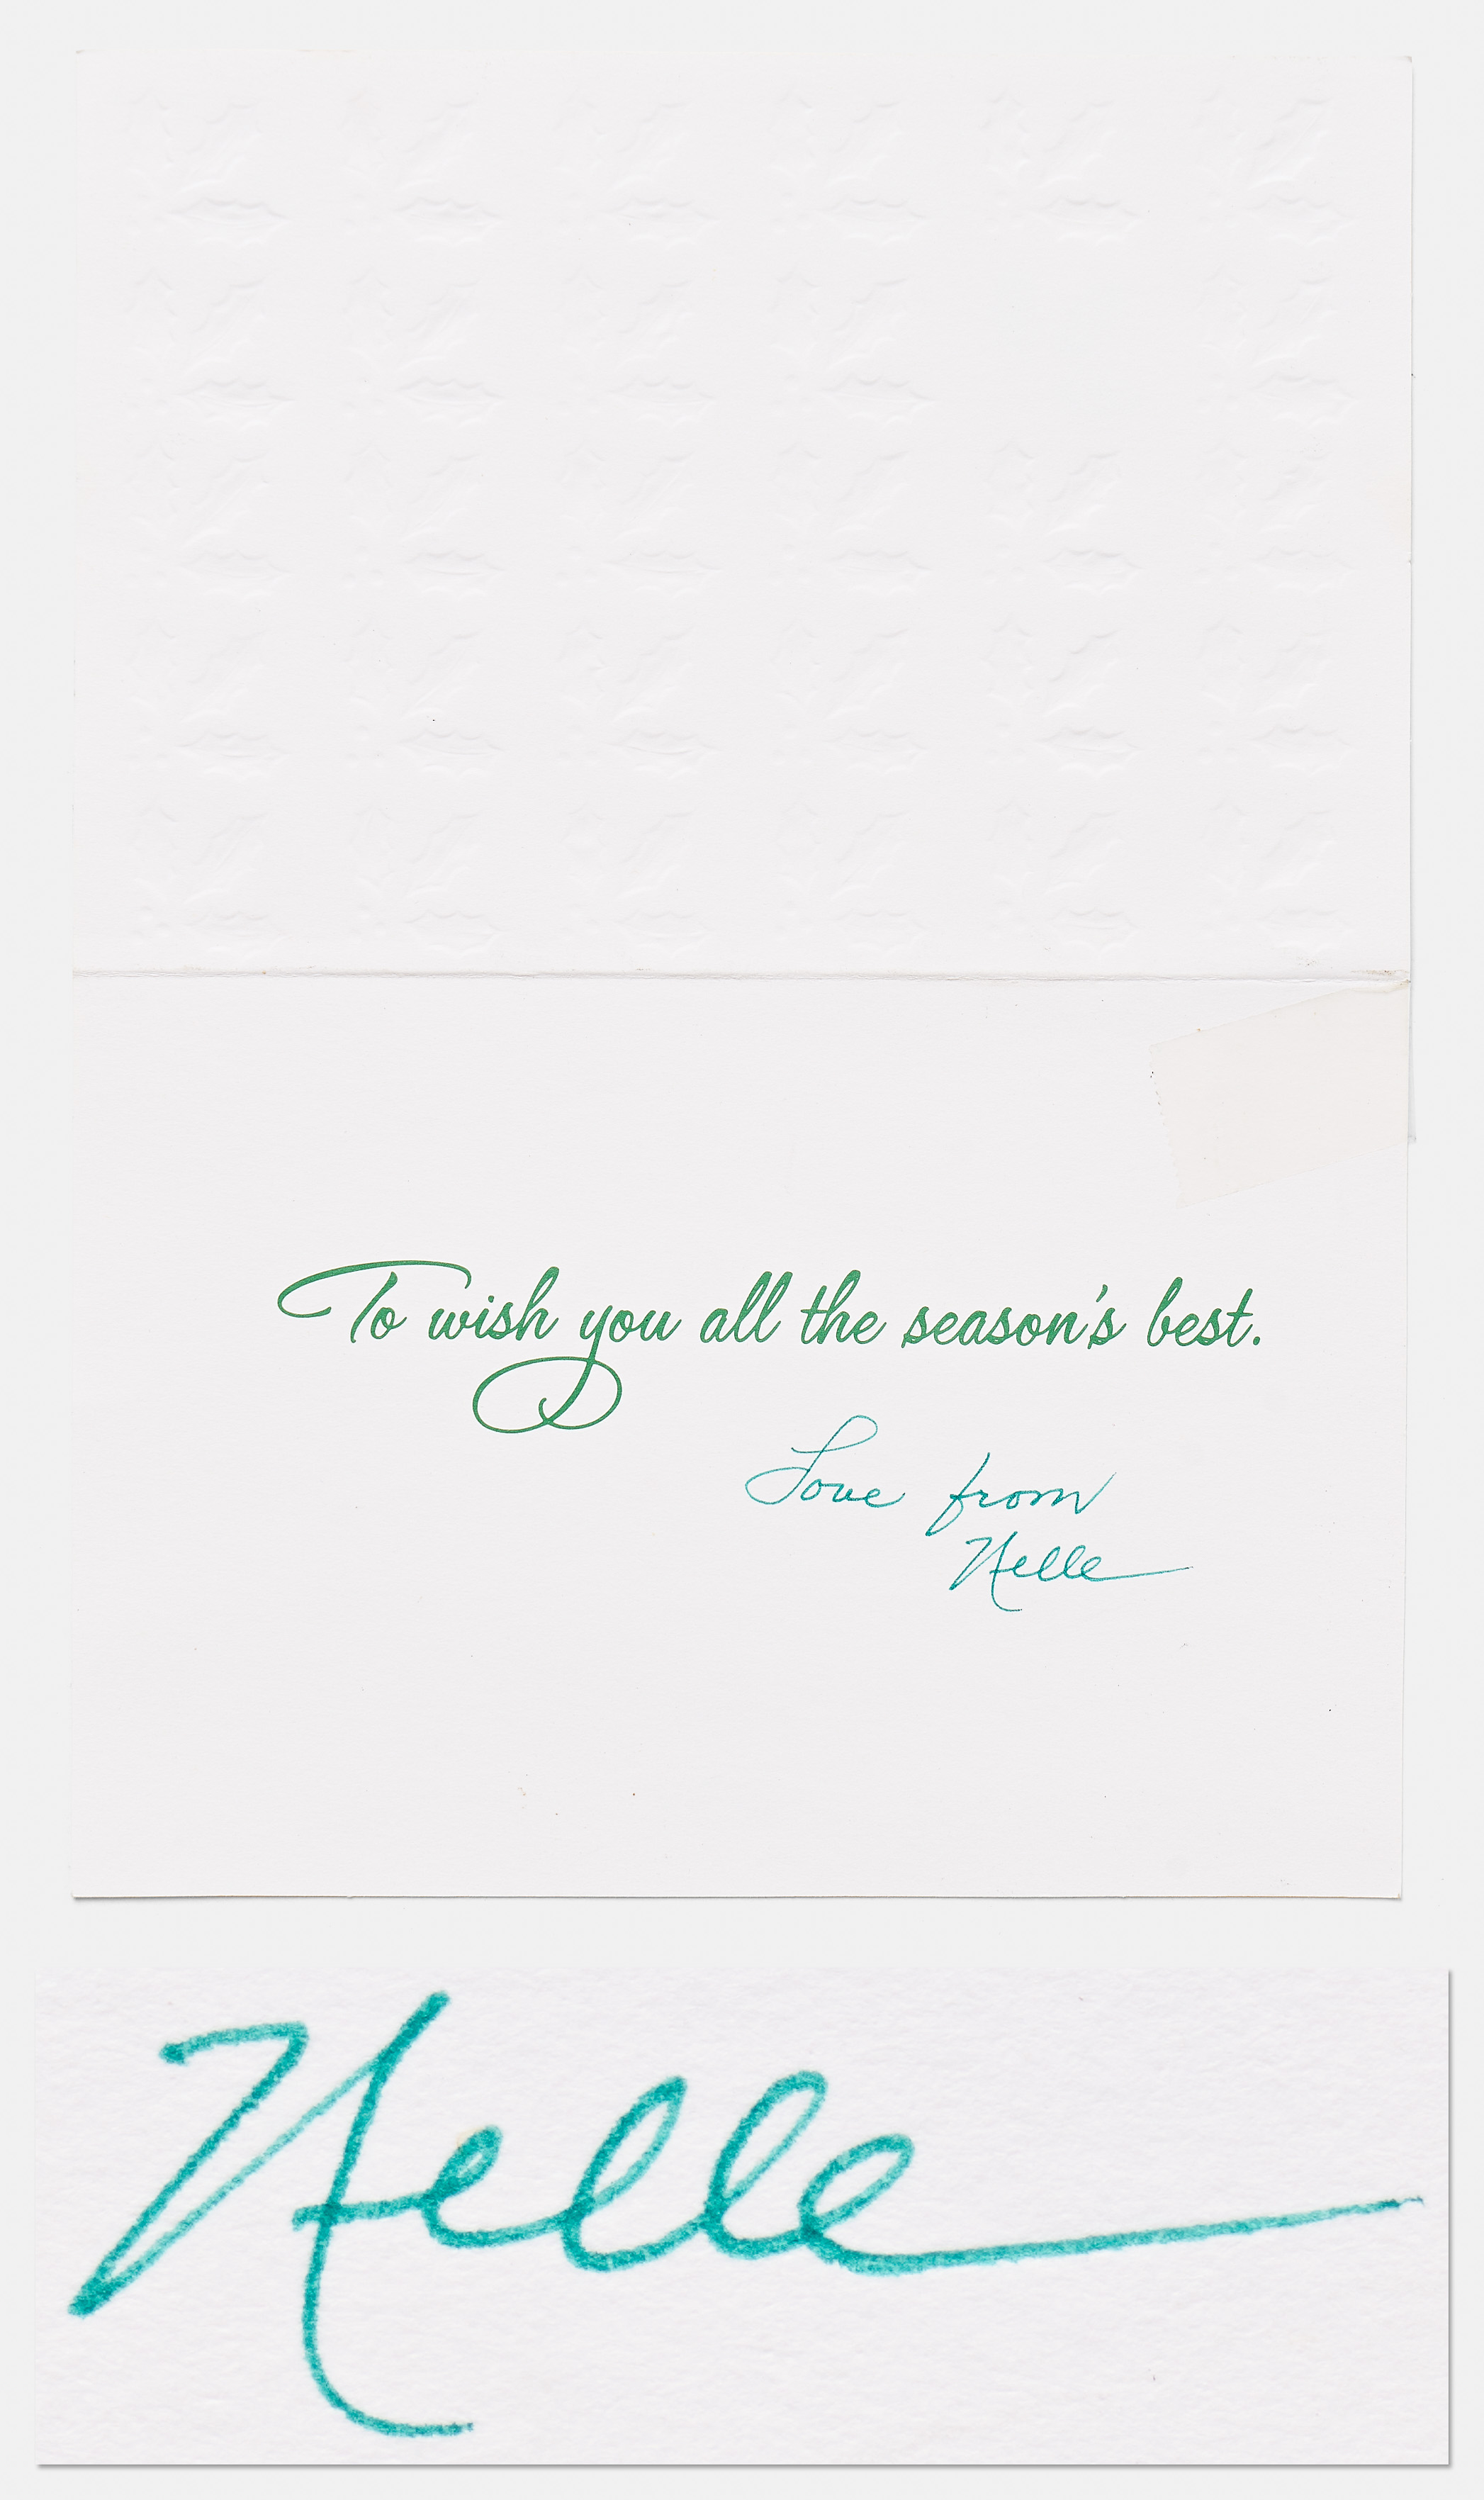 To wish you all the season's best.
Love from
Nelle
Nelle